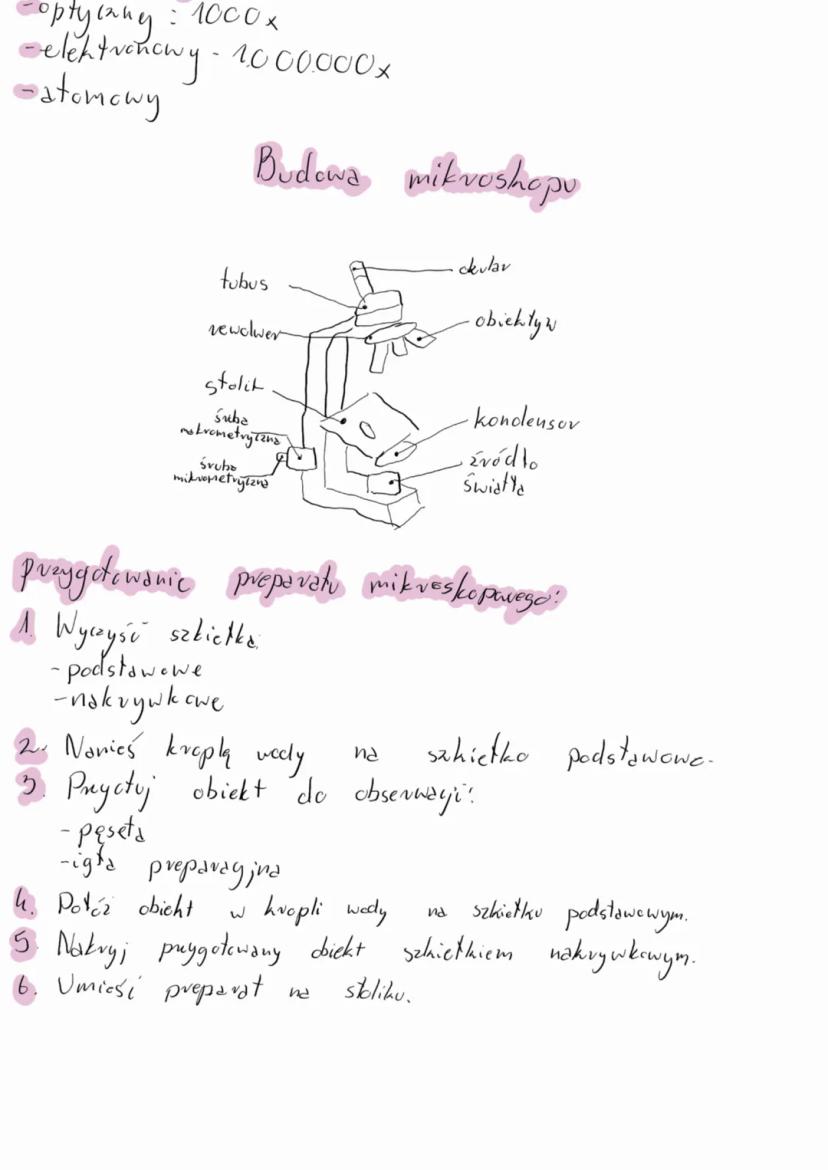 - optyczny : 1000x
- elektronowy - 1.000.000x
- atomowy
Budowa mikroskopu
okular
tubus
obiektyw
rewolwer
stolik
śruba
makrometryczna
kondensor
śruba
mikrometryczna
źródło
światła
Przygotowanie preparatu mikroskopowego:
1. Wyczyść szkiełka:
- podstawowe
- nakrywkowe
2. Nanieś kroplę wody na szkiełko podstawowe.
3. Przygotuj obiekt do obserwacji:
- pęseta
- igła preparacyjna
4. Połóż obiekt w kropli wody na szkiełku podstawowym.
5. Nakryj przygotowany obiekt szkiełkiem nakrywkowym.
6. Umieść preparat na stoliku.